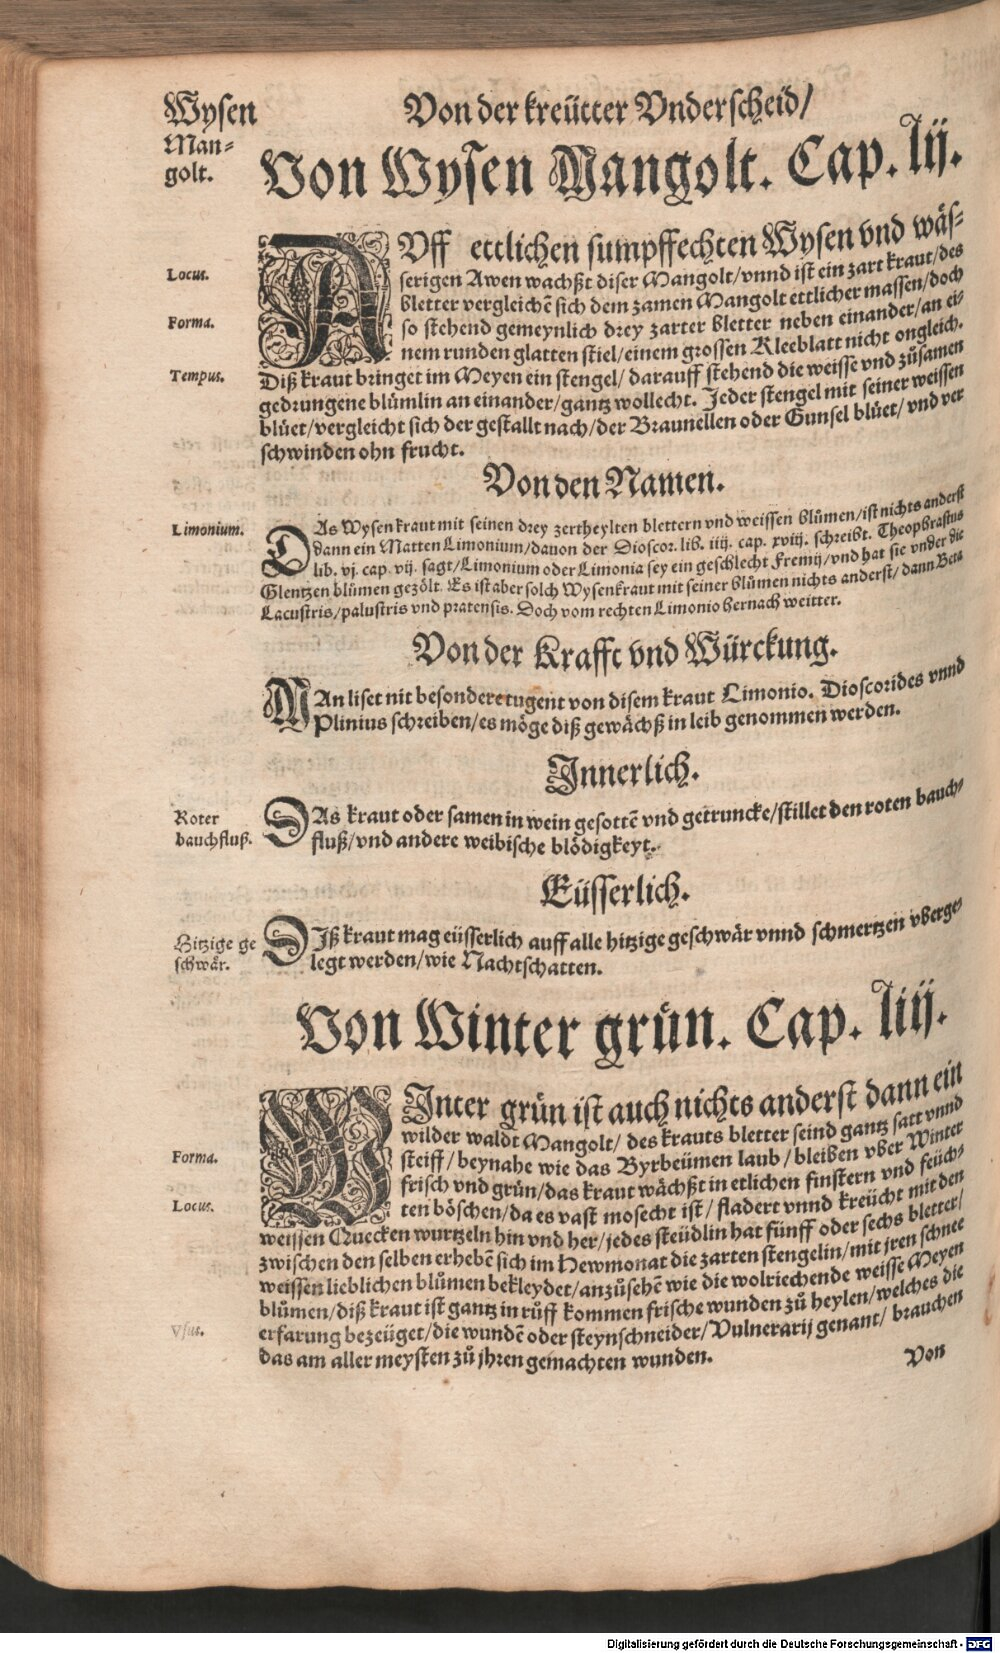 Von der kreütter Vnderscheid/
Wysen
Man-
golt.
Von Wysen Mangolt. Cap. lij.
AVff ettlichen sumpffechten Wysen vnd wäs-
Locus.
serigen Awen wachßt diser Mangolt/vnnd ist ein zart kraut/des
bletter vergleichẽ sich dem zamen Mangolt ettlicher massen/doch
Forma.
so stehend gemeynlich drey zarter bletter neben einander/an ei-
nem runden glatten stiel/einem grossen Kleeblatt nicht ongleich.
Tempus.
Diß kraut bringet im Meyen ein stengel/darauff stehend die weisse vnd zůsamen
gedrungene blümlin an einander/gantz wollecht. Jeder stengel mit seiner weissen
blüet/vergleicht sich der gestallt nach/der Braunellen oder Gunsel blüet/vnd ver
schwinden ohn frucht.
Von den Namen.
Limonium.
DAs Wysenkraut mit seinen drey zertheylten blettern vnd weissen blůmen/ist nichts anderst
dann ein Matten Limonium/dauon der Dioscor. lib. iiij. cap. xviij. schreibt. Theophrastus
lib. vj. cap. vij. sagt/Limonium oder Limonia sey ein geschlecht Fremij/vnd hat sie vnder die
Glentzen blůmen gezölt. Es ist aber solch Wysenkraut mit seiner blůmen nichts anderst/dann Beta
Lacustris/palustris vnd pratensis. Doch vom rechten Limonio hernach weitter.
Von der Krafft vnd Würckung.
MAn liset nit besondere tugent von disem kraut Limonio. Dioscorides vnnd
Plinius schreiben/es möge diß gewächß in leib genommen werden.
Innerlich.
Roter
bauchfluß.
DAs kraut oder samen in wein gesottẽ vnd getruncke/stillet den roten bauch-
fluß/vnd andere weibische blödigkeyt.
Eüsserlich.
Hitzige ge
schwär.
DIß kraut mag eüsserlich auff alle hitzige geschwär vnnd schmertzen vberge-
legt werden/wie Nachtschatten.
Von Winter grün. Cap. liij.
WInter grün ist auch nichts anderst dann ein
wilder waldt Mangolt/des krauts bletter seind gantz satt vnnd
Forma.
steiff/beynahe wie das Byrbeümen laub/bleiben vber Winter
frisch vnd grün/das kraut wächßt in etlichen finstern vnd feüch-
Locus.
ten böschen/da es vast mosecht ist/fladert vnnd kreücht mit den
weissen Quecken wurtzeln hin vnd her/jedes steüdlin hat fünff oder sechs bletter/
zwischen den selben erhebẽ sich im Hewmonat die zarten stengelin/mit jren schnee
weissen lieblichen blůmen bekleydet/anzůsehẽ wie die wolriechende weisse Meyen
blůmen/diß kraut ist gantz in růff kommen frische wunden zů heylen/welches die
Vsus.
erfarung bezeüget/die wundẽ oder steynschneider/Vulnerarij genant/brauchen
das am aller meysten zů jhren gemachten wunden.
Von
Digitalisierung gefördert durch die Deutsche Forschungsgemeinschaft - DFG